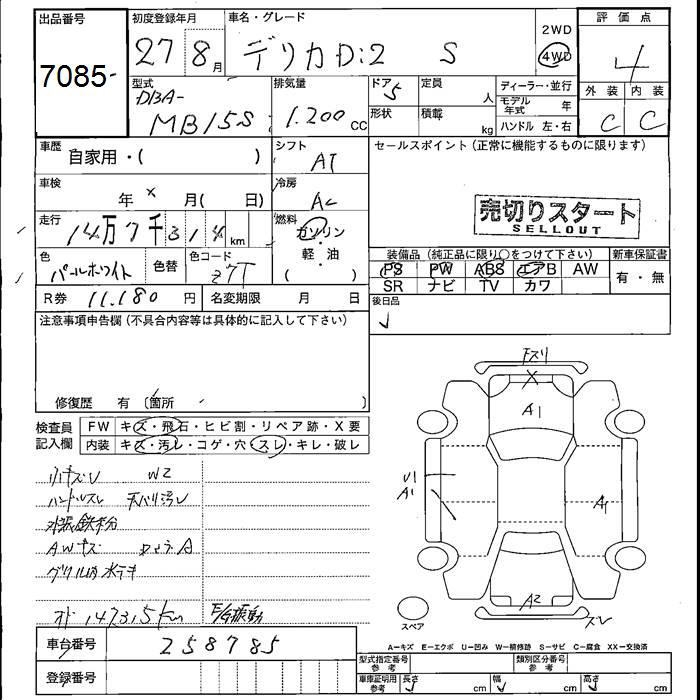 出品番号
7085-
初度登録年月
27 8月
車名・グレード
デリカD:2 S
2WD
4WD
評価点
4
外装 内装
C C
型式
DBA-
MB15S
排気量
1.200cc
ドア 5
形状
定員 人
積載 kg
ディーラー・並行
モデル年式 年
ハンドル 左・右
車歴 自家用・( )
車検 年 × 月( 日)
走行 14万7千314km
色 パールホワイト
色替
色コード Z7T
R券 11.180円
名変期限 月 日
シフト AT
冷房 AC
燃料 ガソリン
軽・油
( )
セールスポイント(正常に機能するものに限ります)
売切りスタート
SELLOUT
装備品(純正品に限り○をつけて下さい)
新車保証書
PS PW ABS エアB AW
SR ナビ TV カワ
有・無
後日品
注意事項申告欄(不具合内容等は具体的に記入して下さい)
修復歴 有(箇所 )
検査員
記入欄
FW キズ・飛石・ヒビ割・リペア跡・X要
内装 キズ・汚レ・コゲ・穴・スレ・キレ・破レ
小キズU W2
ハンドルスレ 天バリ汚レ
AWキズ
オド147,315km
車台番号 258785
登録番号
A1
U1
A1
A1
A2
スレ
スペア
A-キズ E-エクボ U-凹み W-補修跡 S-サビ C-腐食 XX-交換済
型式指定番号
参考
類別区分番号
参考
車庫証明用
参考
長さ cm
幅 cm
高さ cm